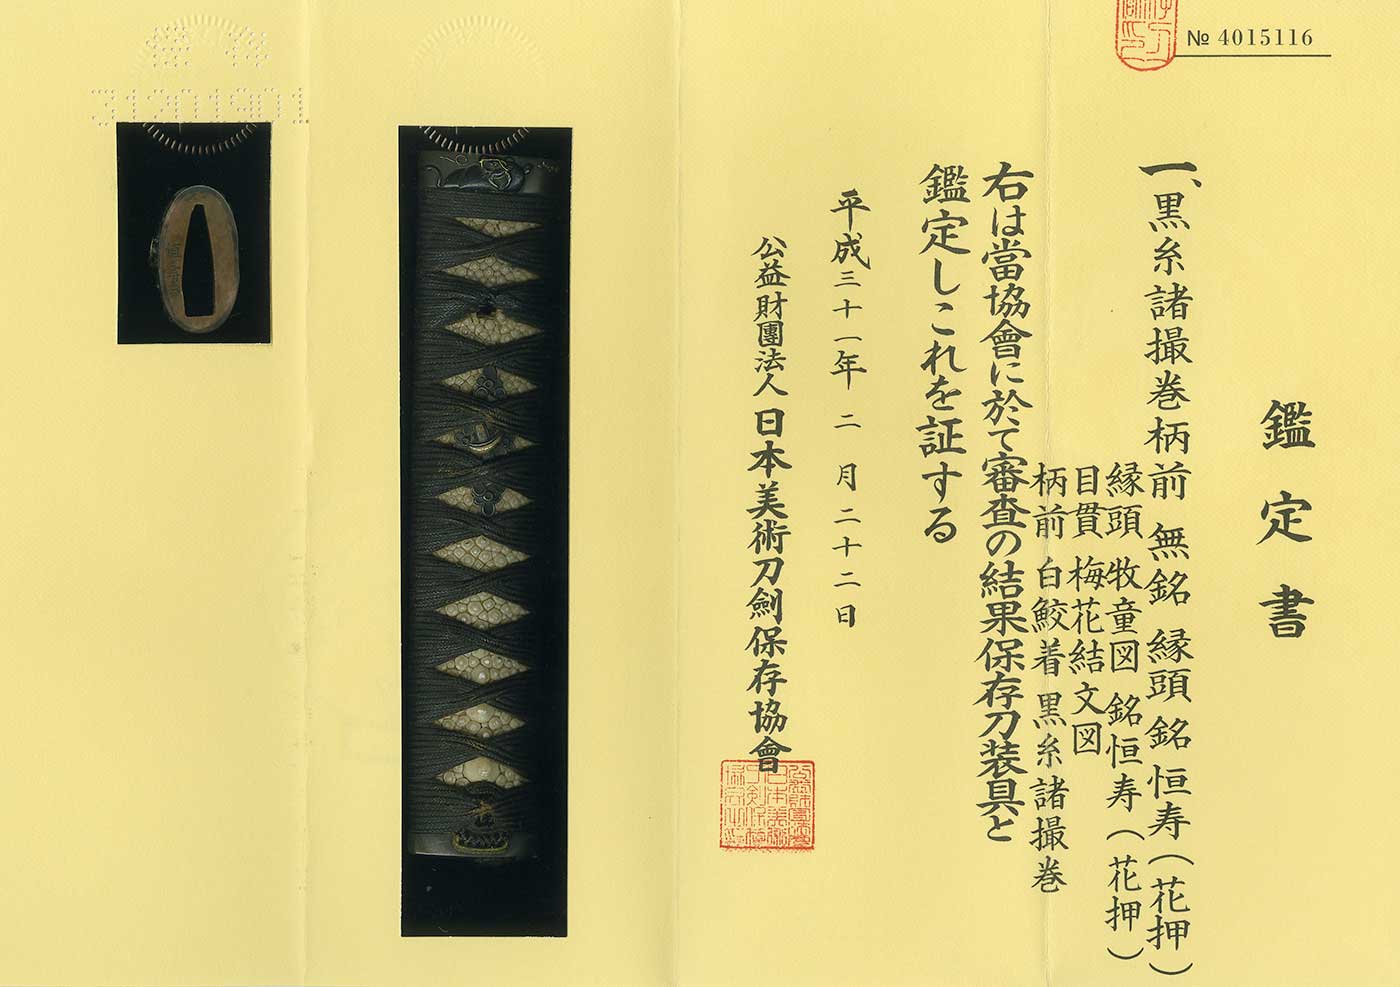 № 4015116
鑑定書
一、黒糸諸撮巻柄前 無銘 縁頭 銘 恒寿(花押)
縁頭 牧童図 銘 恒寿(花押)
目貫 梅花結文図
柄前 白鮫着黒糸諸撮巻
右は當協會に於て審査の結果保存刀装具と
鑑定しこれを証する
平成三十一年 二 月 二十二日
公益財團法人 日本美術刀劍保存協會
31201901